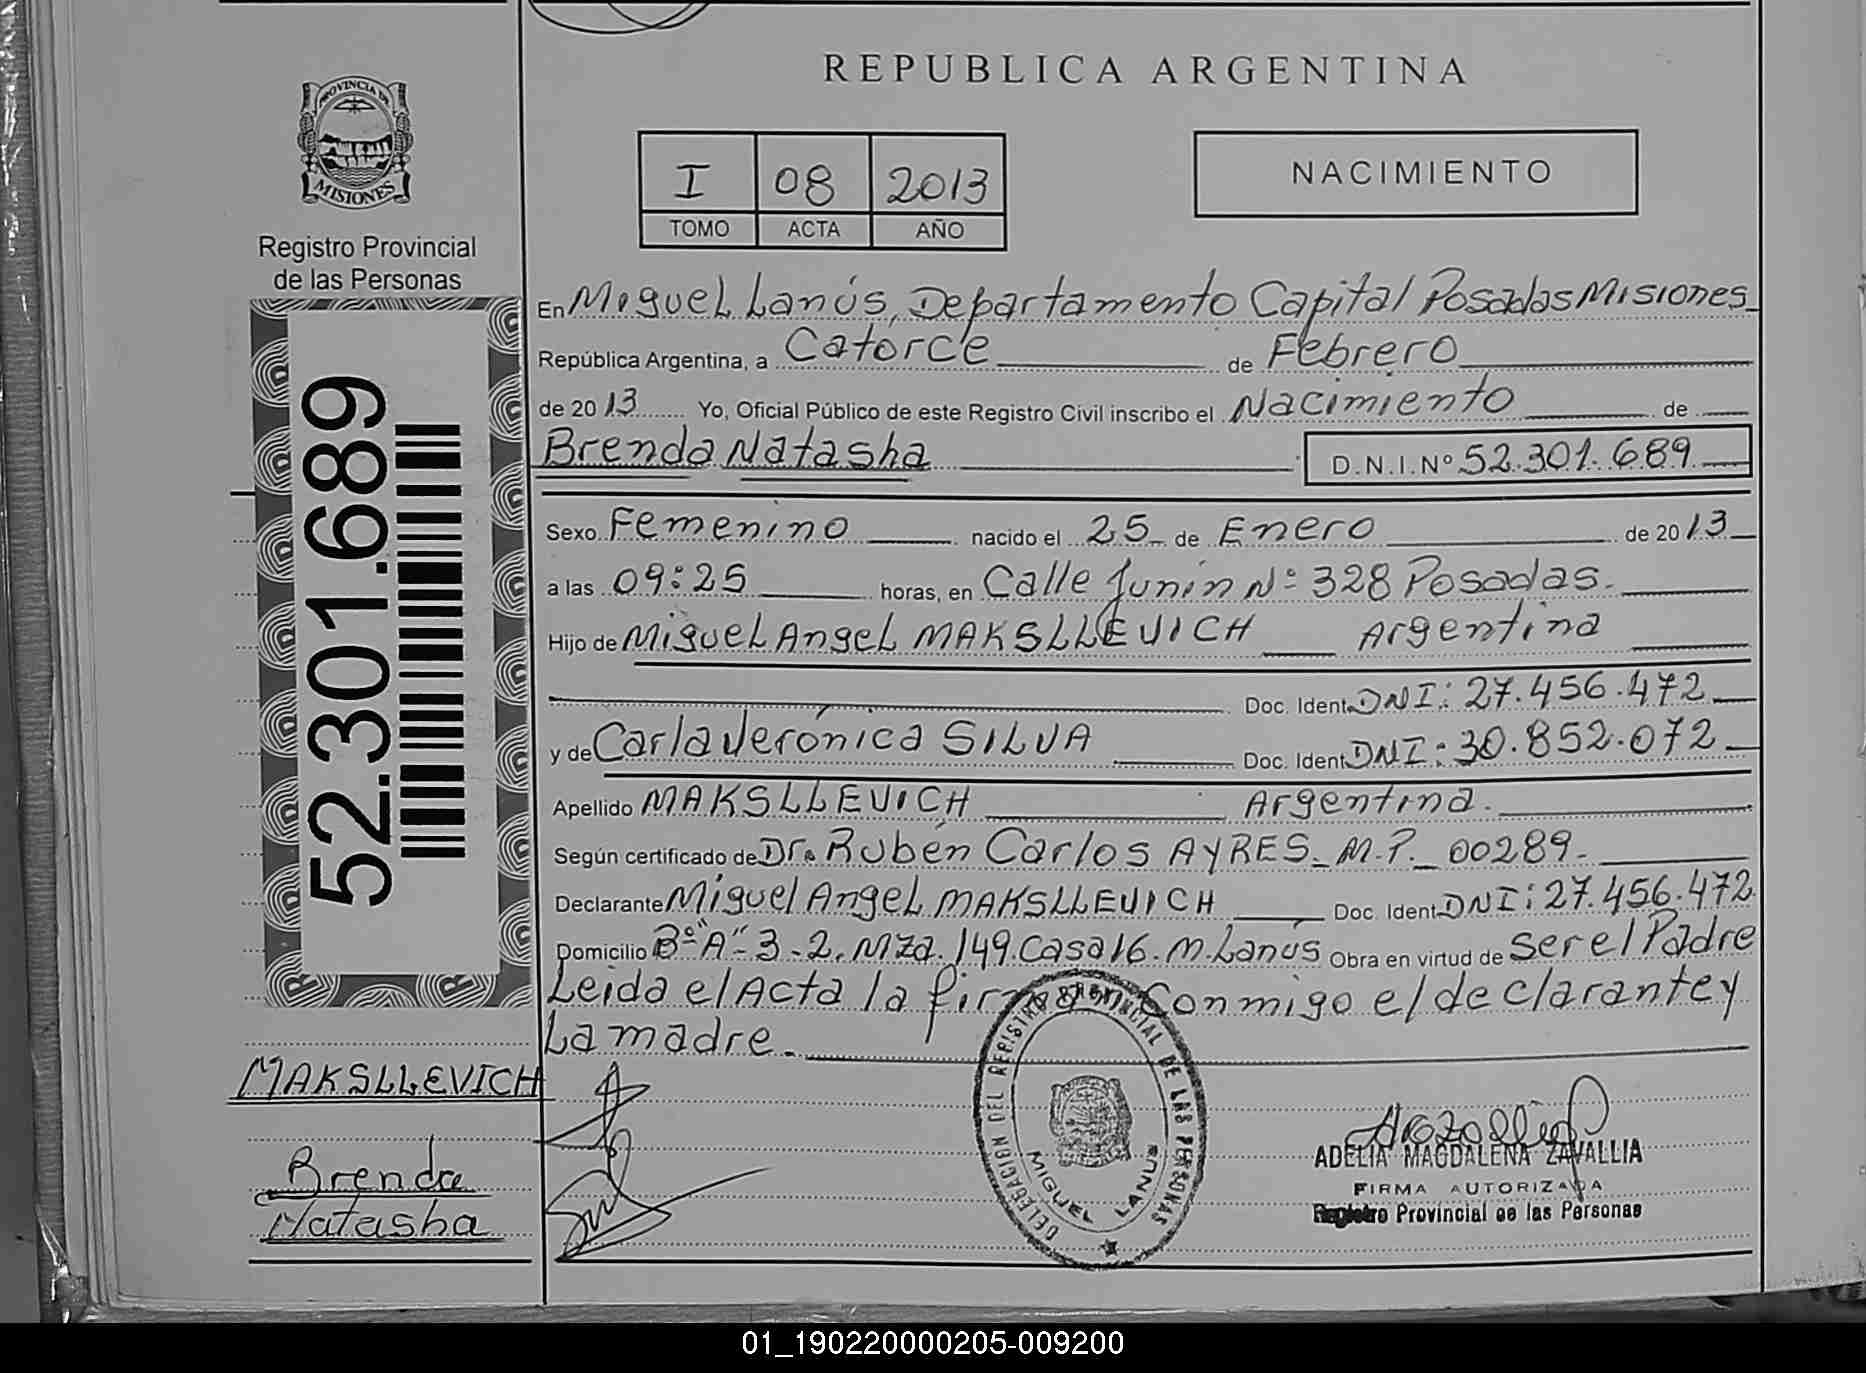 REPUBLICA ARGENTINA
PROVINCIA DE
MISIONES
Registro Provincial
de las Personas
I 08 2013
TOMO ACTA AÑO
NACIMIENTO
52.301.689
En Miguel Lanús, Departamento Capital Posadas Misiones
República Argentina, a Catorce de Febrero
de 2013 Yo, Oficial Público de este Registro Civil inscribo el Nacimiento de
Brenda Natasha D.N.I.Nº 52.301.689
Sexo Femenino nacido el 25 de Enero de 2013
a las 09:25 horas, en Calle Junín Nº 328 Posadas.
Hijo de Miguel Angel MAKSLLEVICH Argentina
Doc. Ident. DNI: 27.456.472
y de Carla Verónica SILVA Doc. Ident. DNI: 30.852.072
Apellido MAKSLLEVICH Argentina.
Según certificado de Dr. Rubén Carlos AYRES_ M.P._ 00289-
Declarante Miguel Angel MAKSLLEVICH Doc. Ident. DNI: 27.456.472
Domicilio Bº "A"- 3-2. Mza. 149. Casa 16. M. Lanús Obra en virtud de Ser el Padre
Leida el Acta la firman Conmigo el declarante y
La madre.
MAKSLLEVICH
Brenda
Natasha
DELEGACION DEL REGISTRO PROVINCIAL DE LAS PERSONAS
MIGUEL LANUS
ADELIA MAGDALENA ZAVALLIA
FIRMA AUTORIZADA
Registro Provincial de las Personas
01_190220000205-009200